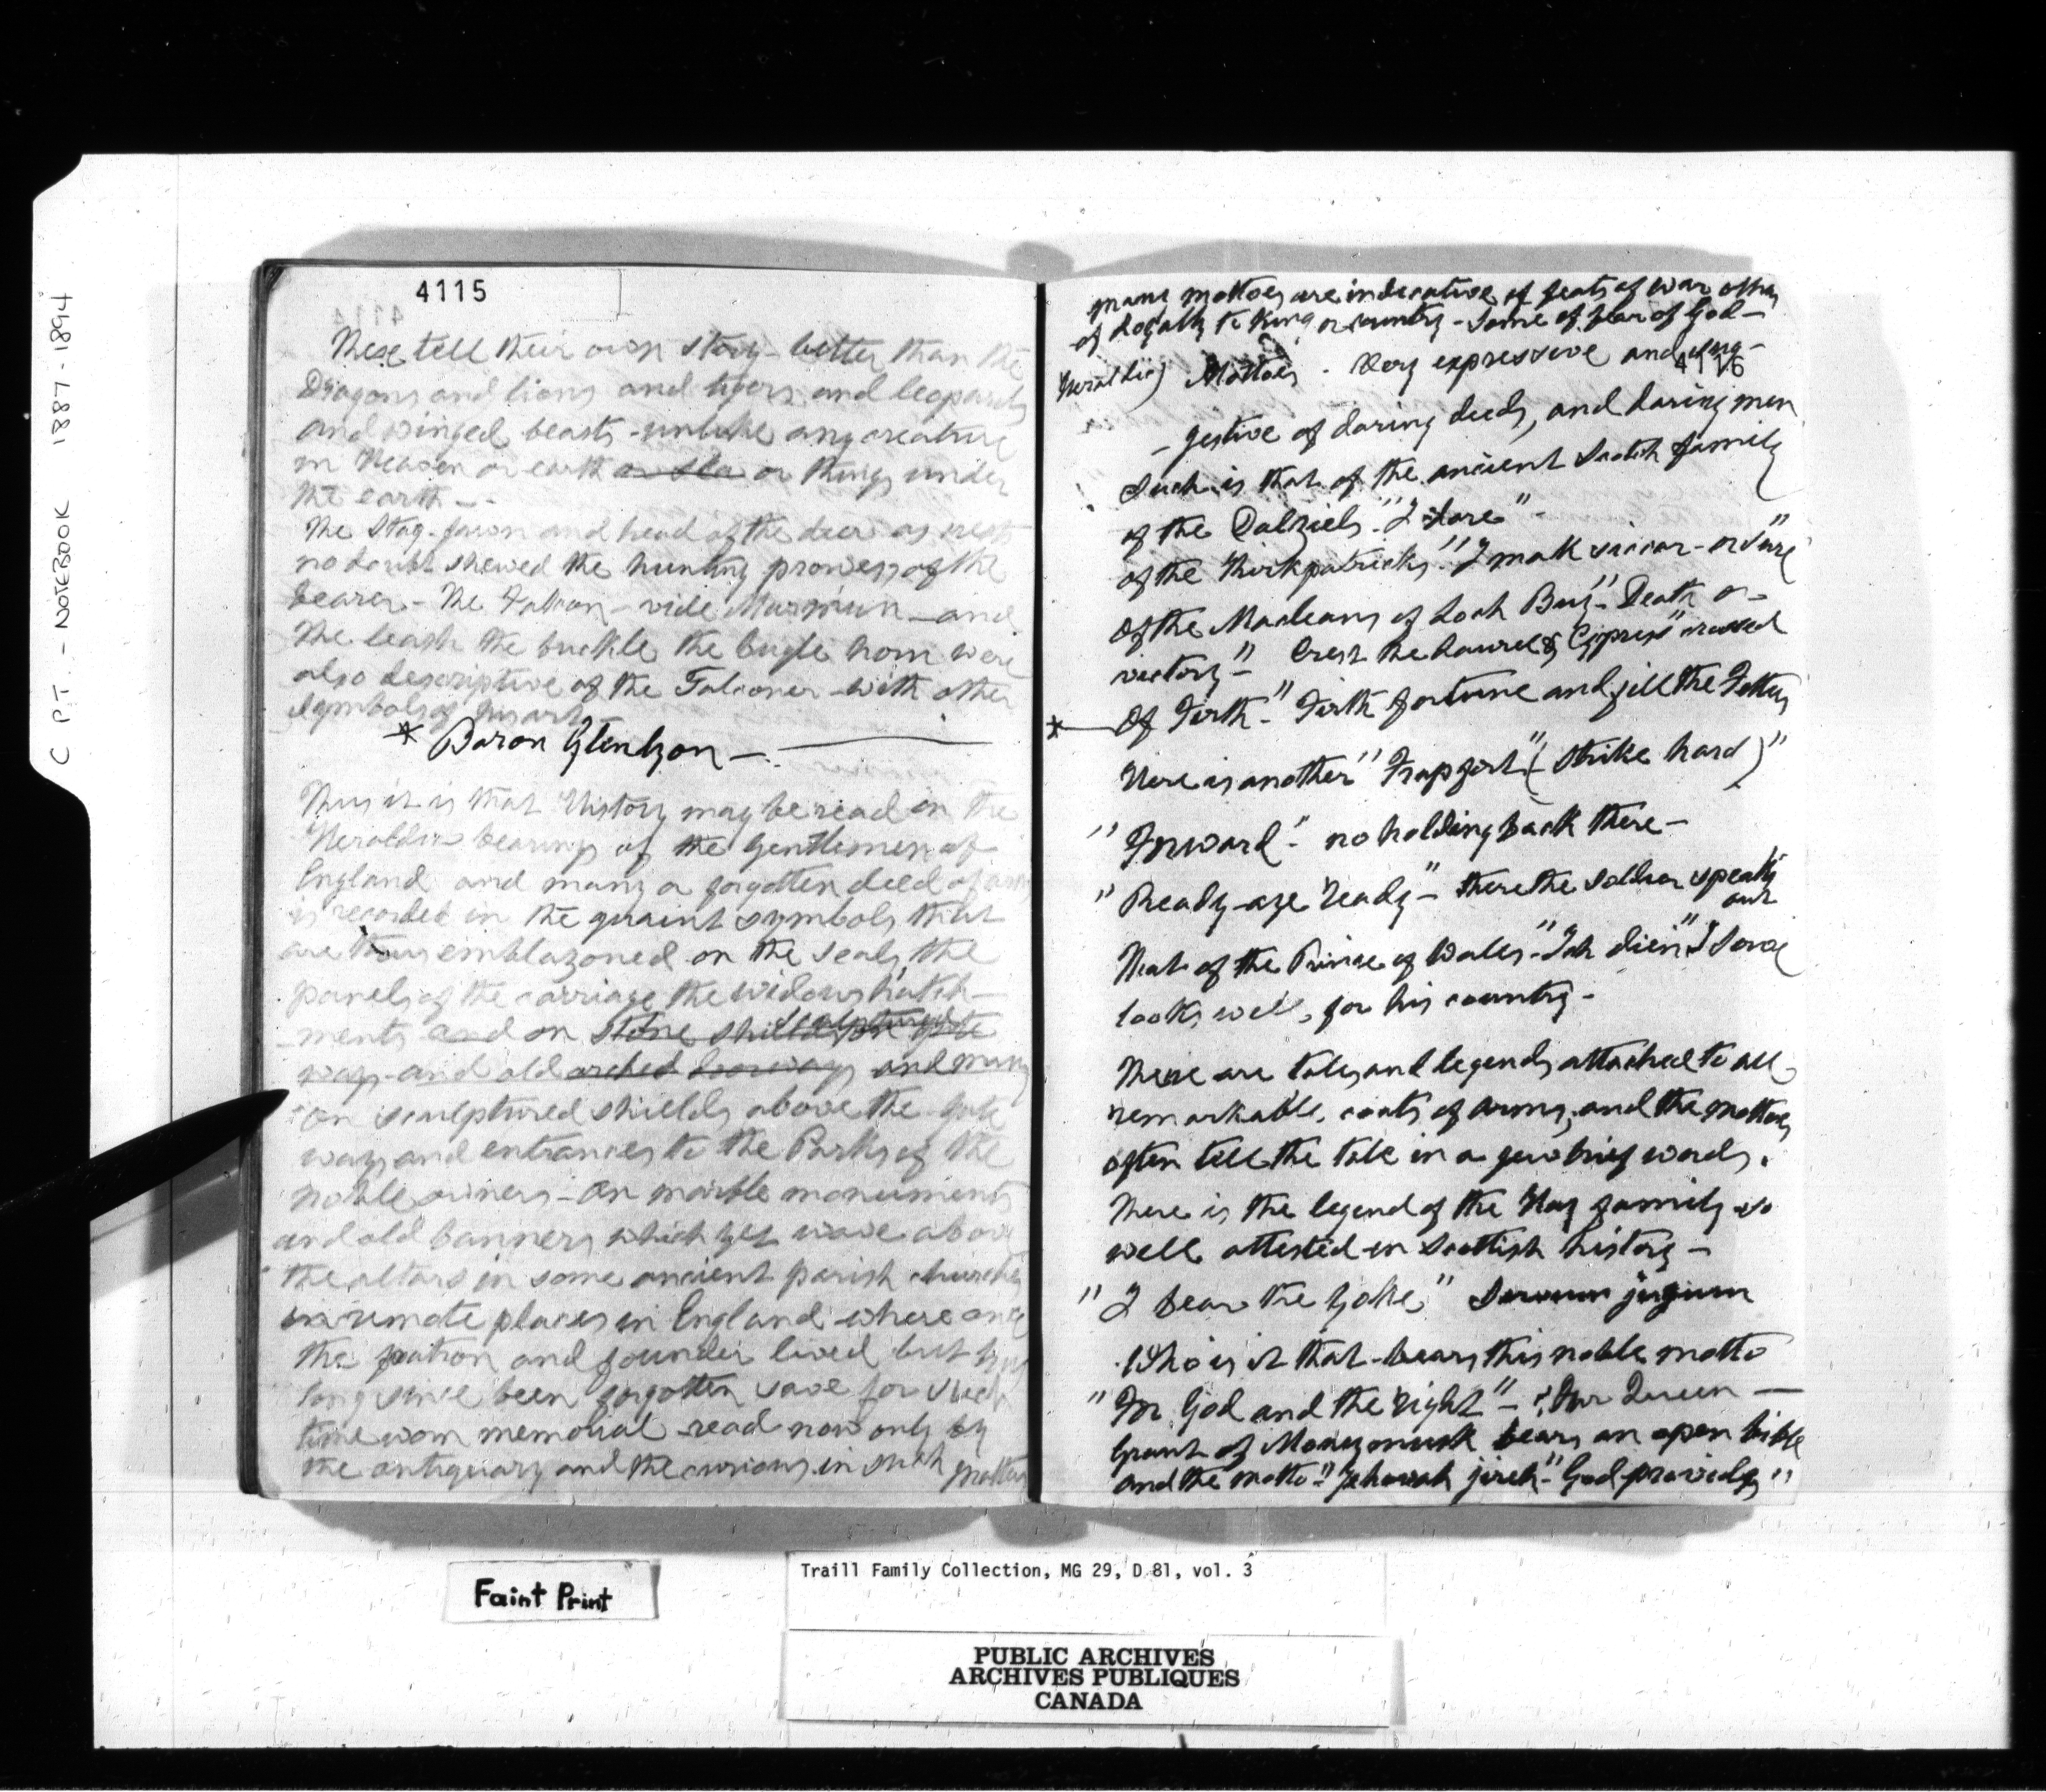 C P.T. - NOTEBOOK 1887-1894
4115
These tell their own story - better than the
Dragons and lions and tigers and leopards
and winged beasts - unlike any creature
in Heaven or earth or sea or things under
the earth -
The Stag. fawn and head of the deer as crest
no doubt shewed the hunting prowess of the
bearer - The Falcon - vide Marmiun - and
the leash the buckle the bugle horn were
also descriptive of the Falconer - with other
Symbols of his art
* Baron Glenlyon -
Thus it is that History may be read in the
Heraldic bearings of the Gentlemen of
England and many a forgotten deed of arms
is recorded in the quaint symbols that
are thus emblazoned on the seals the
panels of the carriage the widows hatch-
ments and on stone shields sculptured on gate
ways and old arched doorways and many
on sculptured shields above the gate
ways and entrances to the Parks of the
noble owners - on marble monuments
and old banners which yet wave above
the altars in some ancient parish churches
in remote places in England where once
the patron and founder lived but has
long since been forgotten save for such
time worn memorial - read now only by
the antiquary and the curious in such matters
many mottoes are indicative of feats of war others
of Loyalty to King or country - Some of fear of God -
4116
Heraldic) Mottoes - Very expressive and sug-
- gestive of daring deeds, and daring men
Such is that of the ancient Scotch family
of the Dalziels. "I dare" -
of the Kirkpatricks. "I mak siccar - or sure"
Of the Macleans of Loch Buy - "Death or
victory" - Crest the Laurel & Cypress crossed
* Of Firth - "Firth fortune and fill the Fetters
Here is another "Frap fort" (Strike hard)"
"Forward" - no holding back there -
"Ready - aye ready" - there the soldier speaks
out
That of the Prince of Wales - "Ich dien" I serve
looks well, for his country -
There are tales and legends attached to all
remarkable coats of arms, and the mottoes
often tell the tale in a few brief words.
There is the legend of the Hay family so
well attested in Scottish history -
"I bear the yoke" Servum jugum
Who is it that bears this noble motto
"For God and the right" - Our Queen -
Grant of Monymusk bears an open bible
and the motto - "Jehovah jireh" - God provides"
Faint Print
Traill Family Collection, MG 29, D 81, vol. 3
PUBLIC ARCHIVES
ARCHIVES PUBLIQUES
CANADA